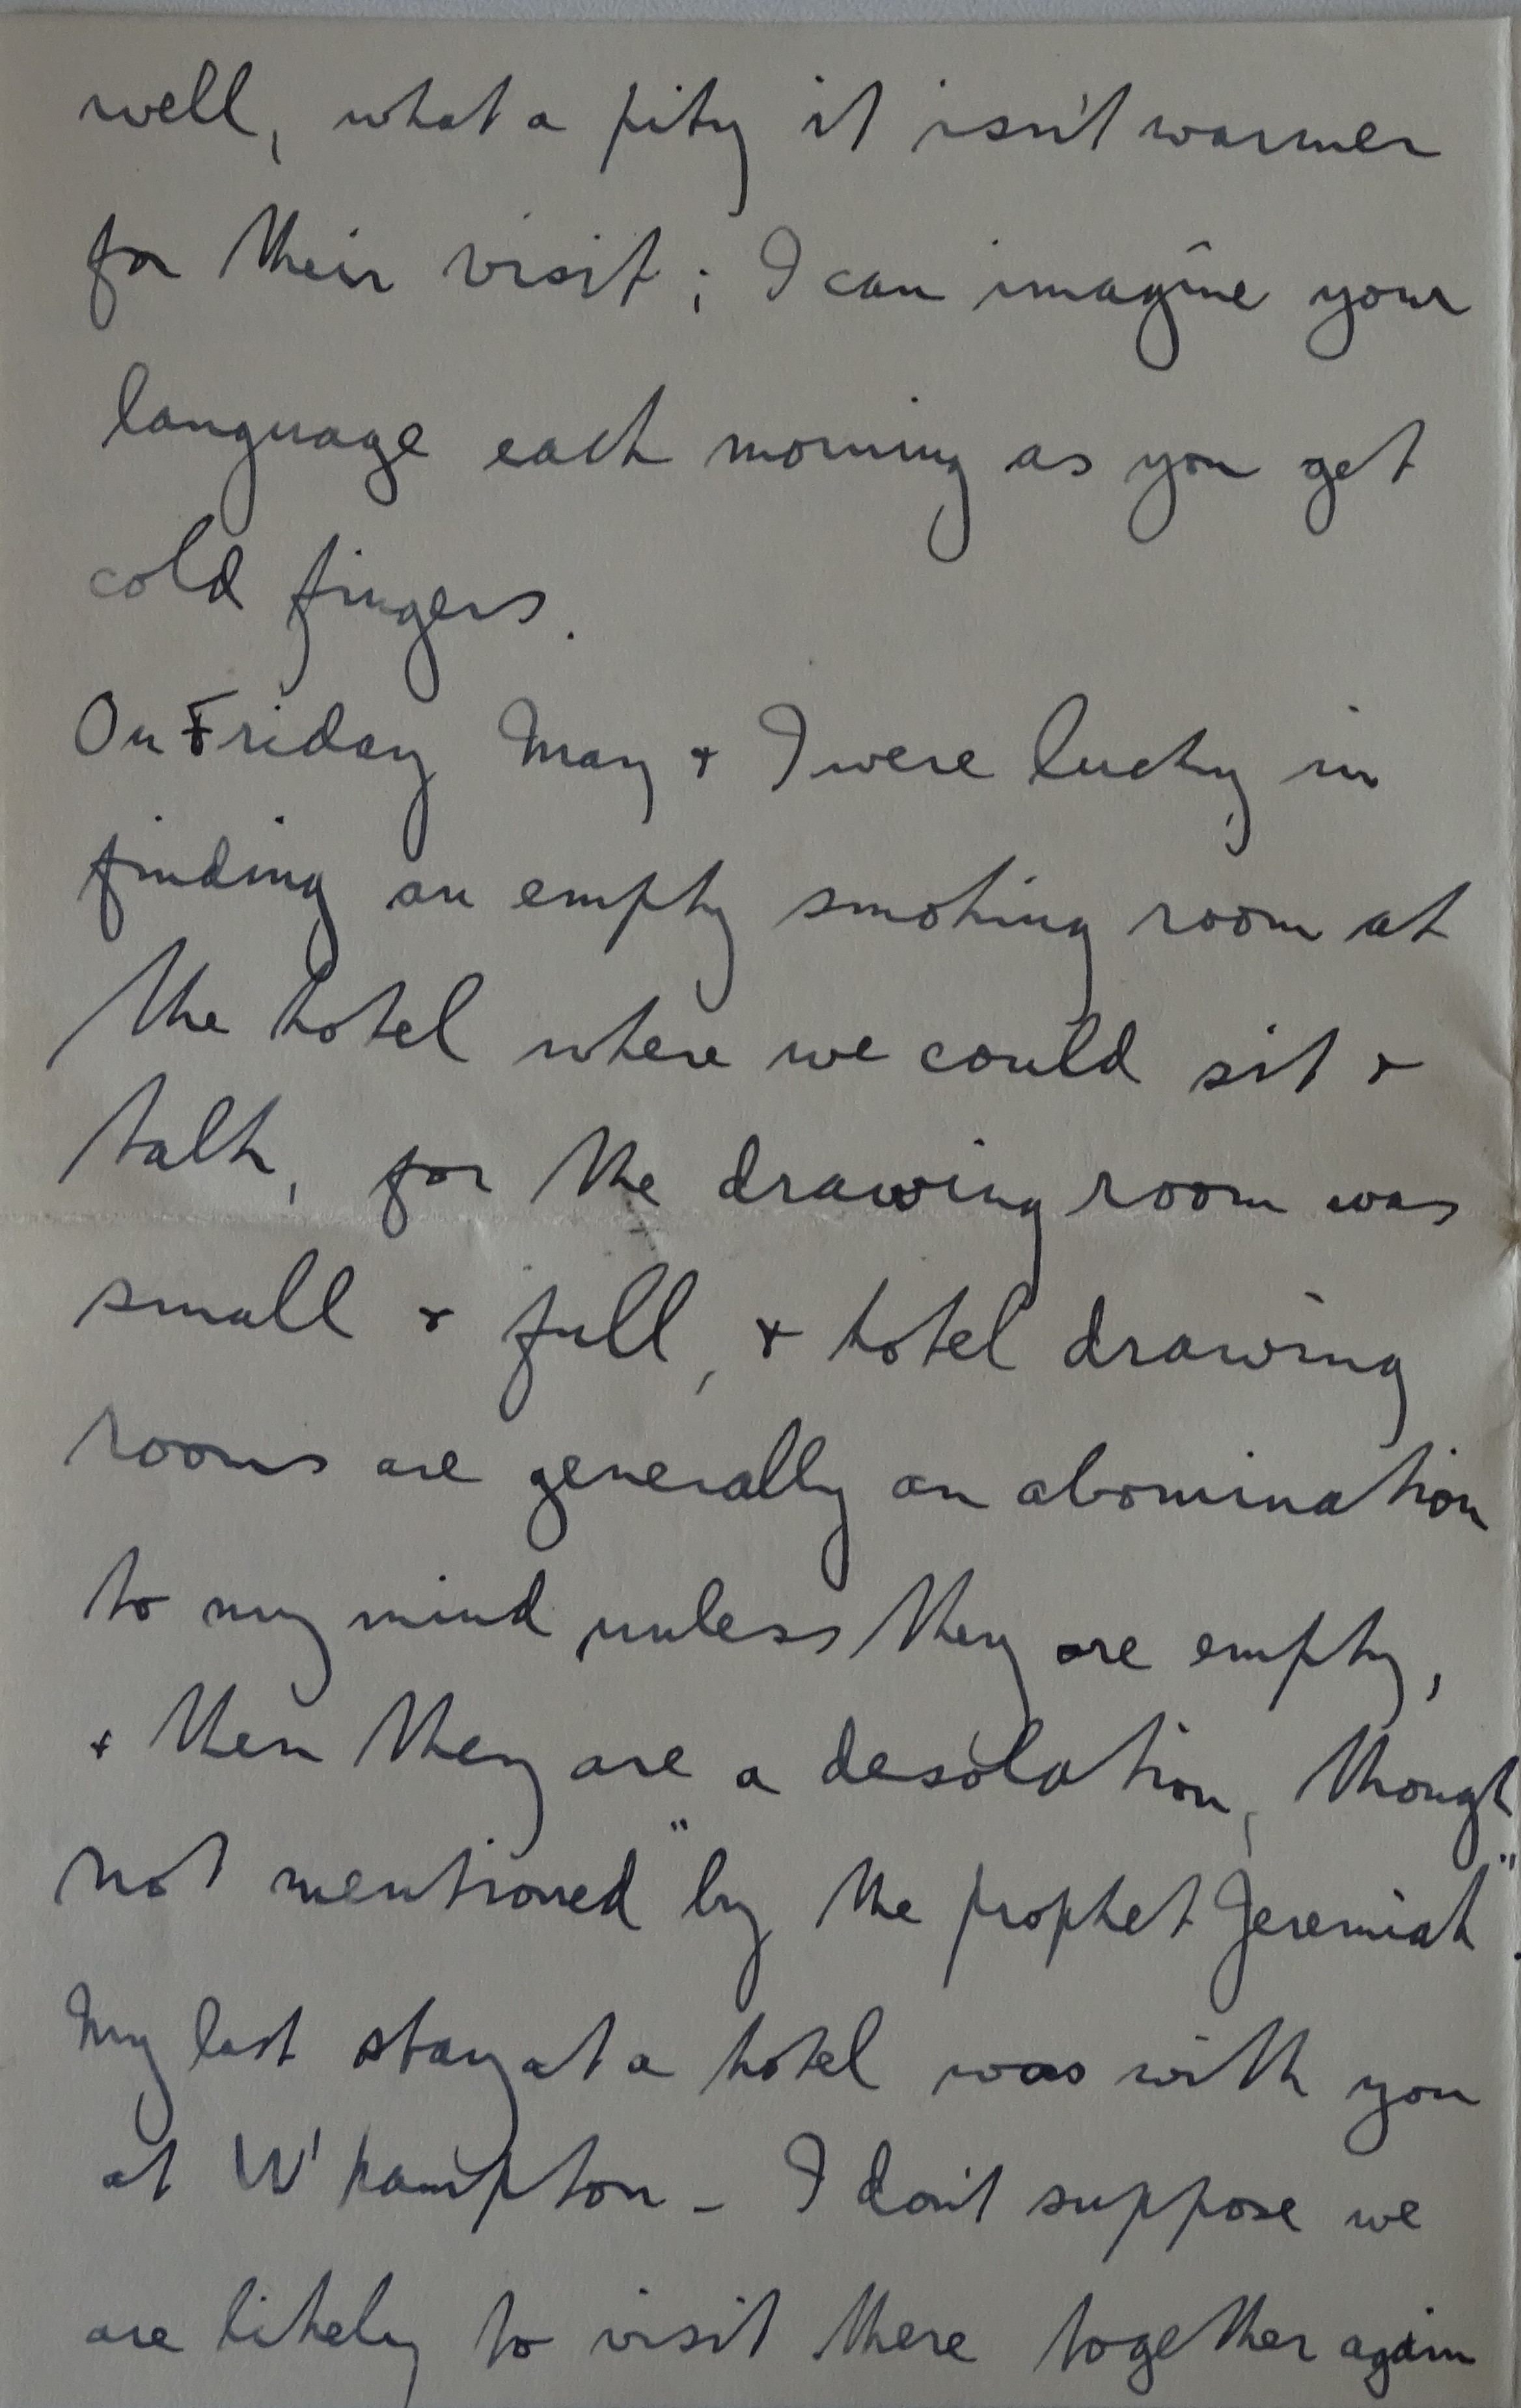 well, what a pity it isn't warmer
for their visit; I can imagine your
language each morning as you get
cold fingers.
On Friday Mary + I were lucky in
finding an empty smoking room at
the hotel where we could sit +
talk, for the drawing room was
small + full, + hotel drawing
rooms are generally an abomination
to my mind unless they are empty,
+ then they are a desolation, though
not mentioned "by the prophet Jeremiah".
My last stay at a hotel was with you
at W'hampton - I don't suppose we
are likely to visit there together again